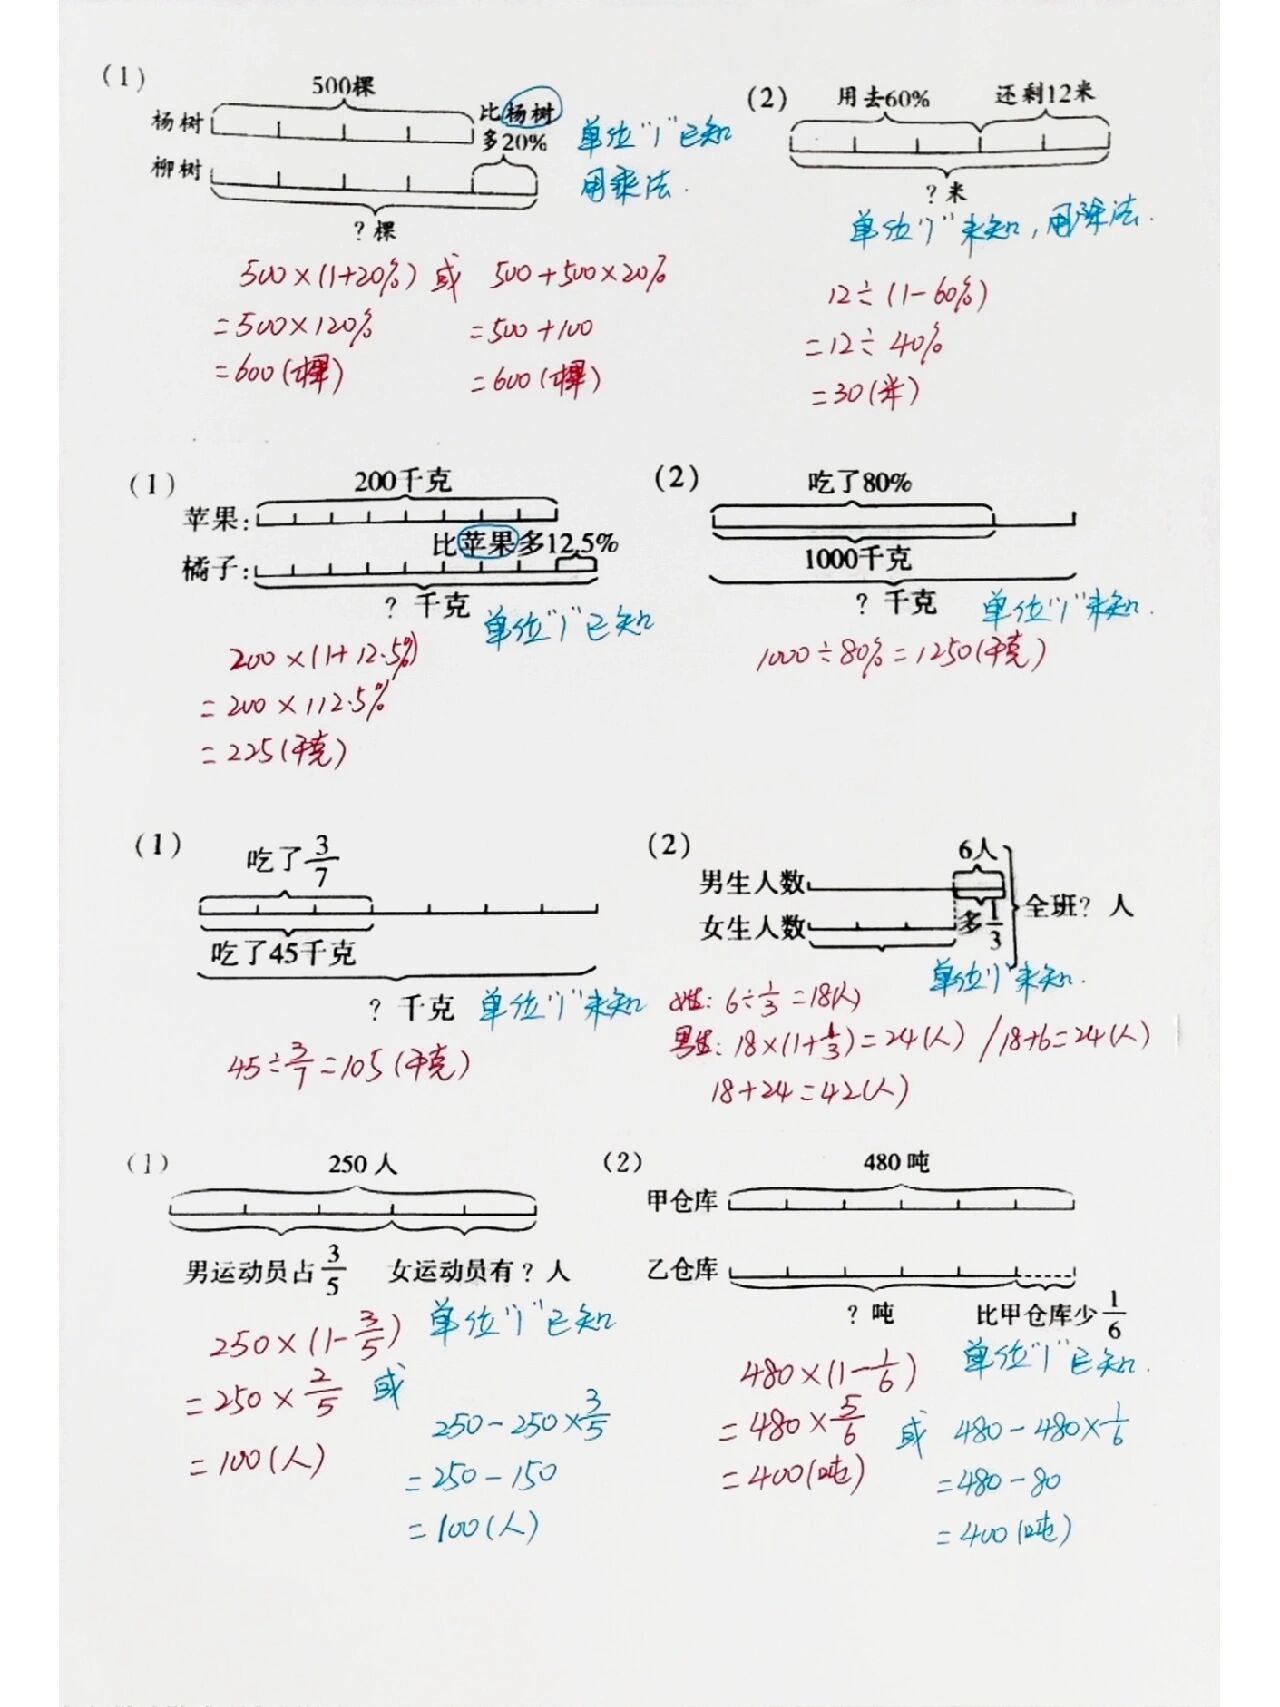 (1)
500棵
杨树
比杨树
多20%
柳树
?棵
单位"1"已知
用乘法.
500×(1+20%) 或 500+500×20%
=500×120% =500+100
=600(棵) =600(棵)
(2)
用去60% 还剩12米
?米
单位"1"未知,用除法.
12÷(1-60%)
=12÷40%
=30(米)
(1)
200千克
苹果:
比苹果多12.5%
橘子:
?千克 单位"1"已知
200×(1+12.5%)
=200×112.5%
=225(千克)
(2)
吃了80%
1000千克
?千克 单位"1"未知.
1000÷80%=1250(千克)
(1)
吃了3/7
吃了45千克
?千克 单位"1"未知
45÷3/7=105(千克)
(2)
6人
男生人数
全班?人
女生人数 多1/3
单位"1"未知.
女生:6÷1/3=18(人)
男生:18×(1+1/3)=24(人) /18+6=24(人)
18+24=42(人)
(1)
250人
男运动员占3/5 女运动员有?人
单位"1"已知
250×(1-3/5)
=250×2/5 或
=100(人)
250-250×3/5
=250-150
=100(人)
(2)
480吨
甲仓库
乙仓库
?吨 比甲仓库少1/6
单位"1"已知.
480×(1-1/6)
=480×5/6 或 480-480×1/6
=400(吨) =480-80
=400(吨)